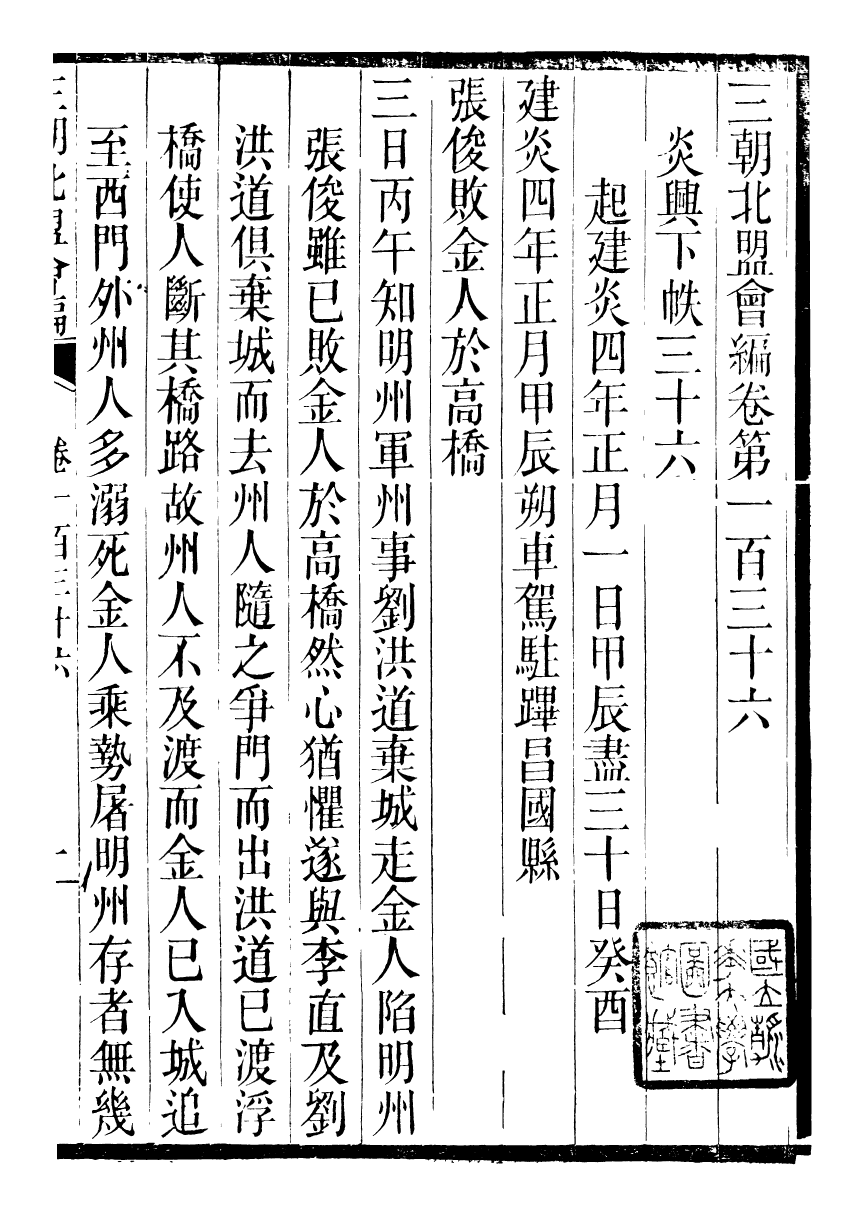 三朝北盟會編卷第一百三十六
炎興下帙三十六
起建炎四年正月一日甲辰盡三十日癸酉
建炎四年正月甲辰朔車駕駐蹕昌國縣
張俊敗金人於高橋
三日丙午知明州軍州事劉洪道棄城走金人陷明州
張俊雖已敗金人於高橋然心猶懼遂與李直及劉
洪道俱棄城而去州人隨之爭門而出洪道已渡浮
橋使人斷其橋路故州人不及渡而金人已入城追
至西門外州人多溺死金人乘勢屠明州存者無幾
三朝北盟會編
卷一百三十六
一
國立
大學
圖書
館藏